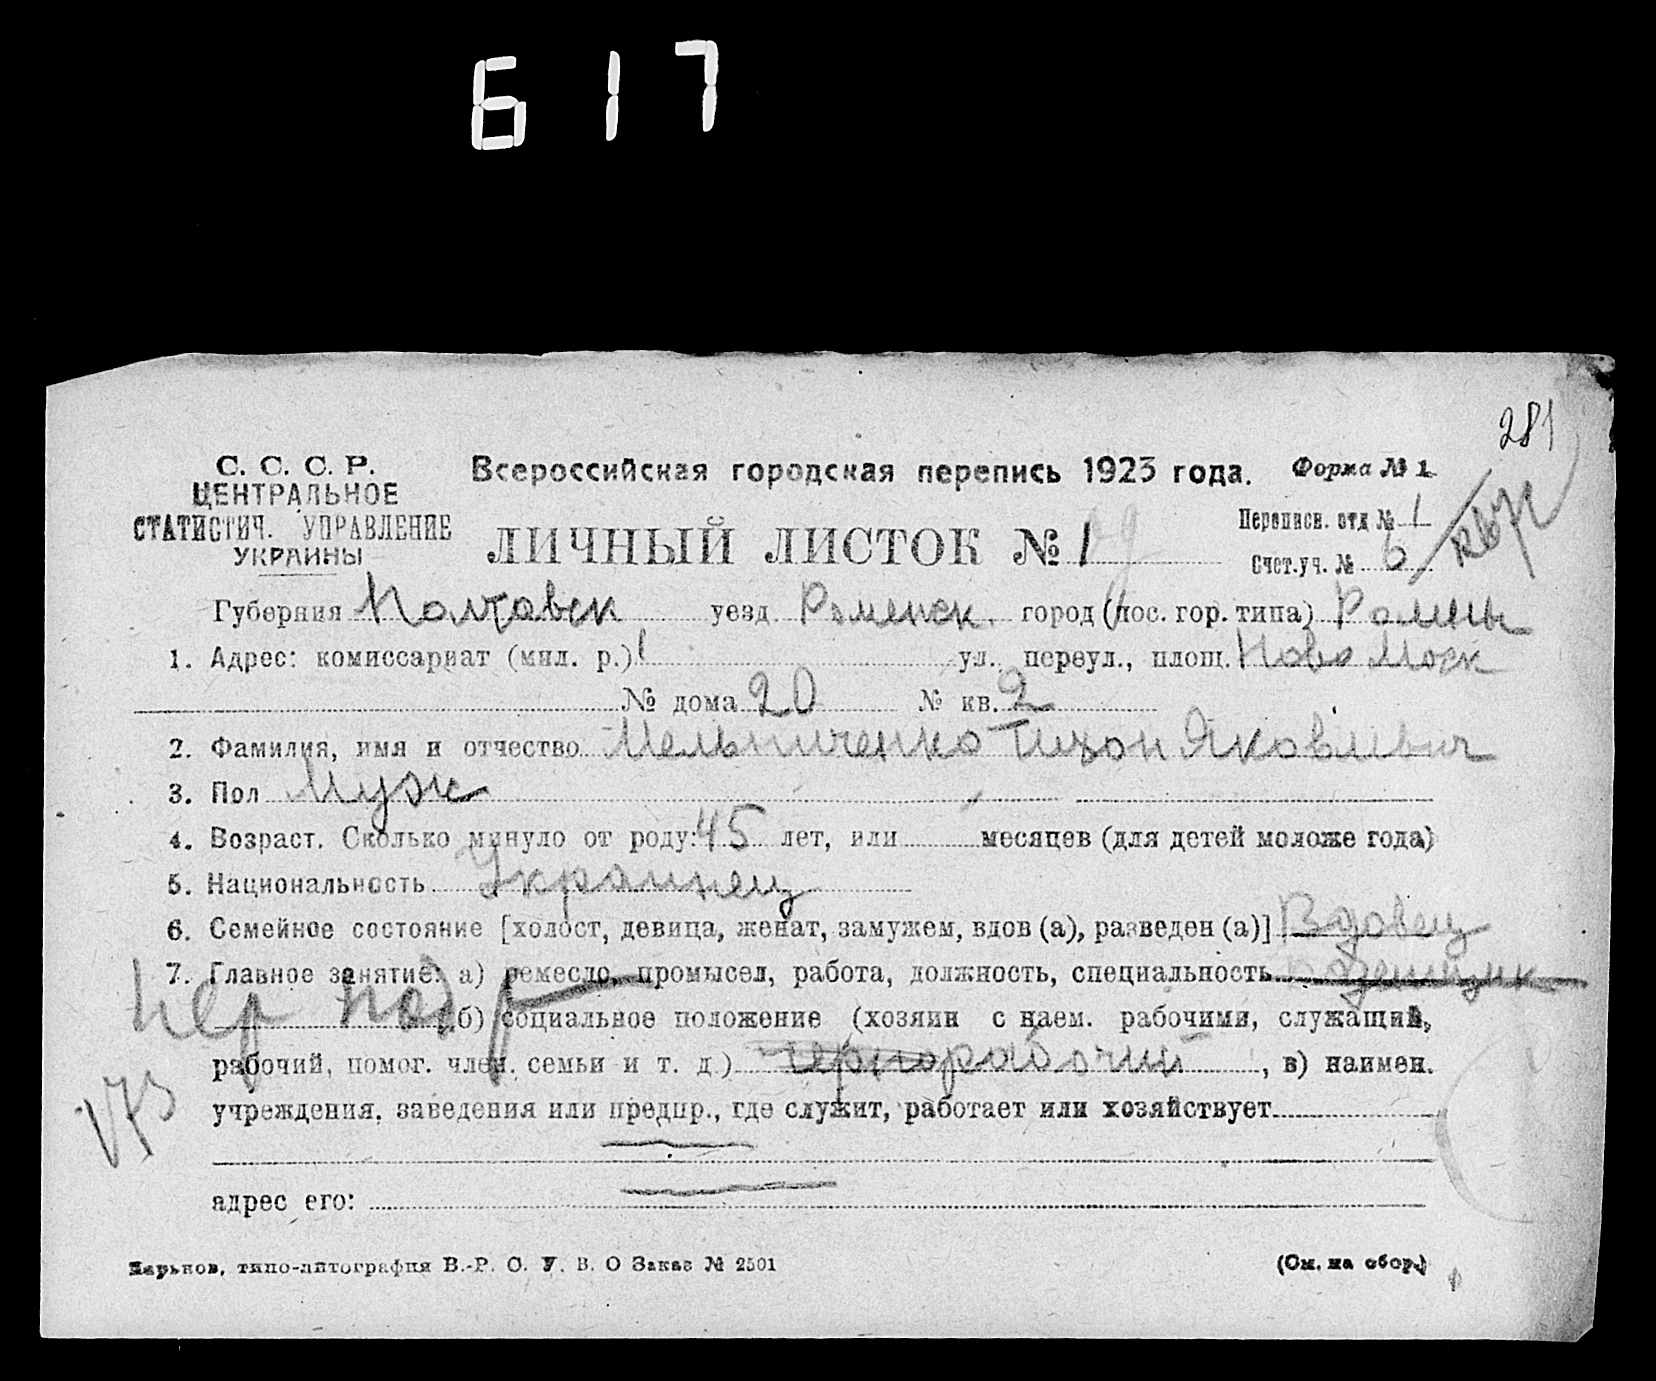 617
281
С. С. С. Р.
ЦЕНТРАЛЬНОЕ
СТАТИСТИЧ. УПРАВЛЕНИЕ
УКРАИНЫ
Всероссийская городская перепись 1923 года. Форма № 1
ЛИЧНЫЙ ЛИСТОК № 1
Переписн. отд № 1
Счет.уч. № 6
Губерния Полтавск уезд Роменск. город (пос. гор. типа) Ромны
1. Адрес: комиссариат (мил. р.) 1 ул., переул., площ. Ново Моск
№ дома 20 № кв. 2
2. Фамилия, имя и отчество Мельниченко Тихон Яковлевич
3. Пол Муж
4. Возраст. Сколько минуло от роду: 45 лет, или месяцев (для детей моложе года)
5. Национальность Украинец
6. Семейное состояние [холост, девица, женат, замужем, вдов (а), разведен (а)] Вдовец
7. Главное занятие: а) ремесло, промысел, работа, должность, специальность
б) социальное положение (хозяин с наем. рабочими, служащий,
рабочий, помог. член. семьи и т. д.) чернорабочий, в) наимен.
учреждения, заведения или предпр., где служит, работает или хозяйствует
173
адрес его:
Харьков, типо-литография В.-Р. С. У. В. О Заказ № 2501 (См. на обор.)